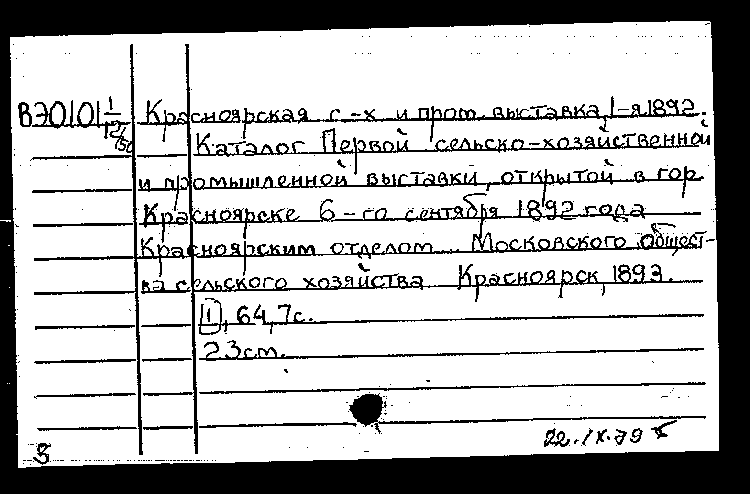 ВЭ0101 1/12/150 Красноярская с.-х и пром. выставка, 1-я 1892.
Каталог Первой сельско-хозяйственной
и промышленной выставки, открытой в гор.
Красноярске 6-го сентября 1892 года
Красноярским отделом Московского общест-
ва сельского хозяйства Красноярск, 1893.
[1], 64, 7 с.
23 см.
22.IX.79
3